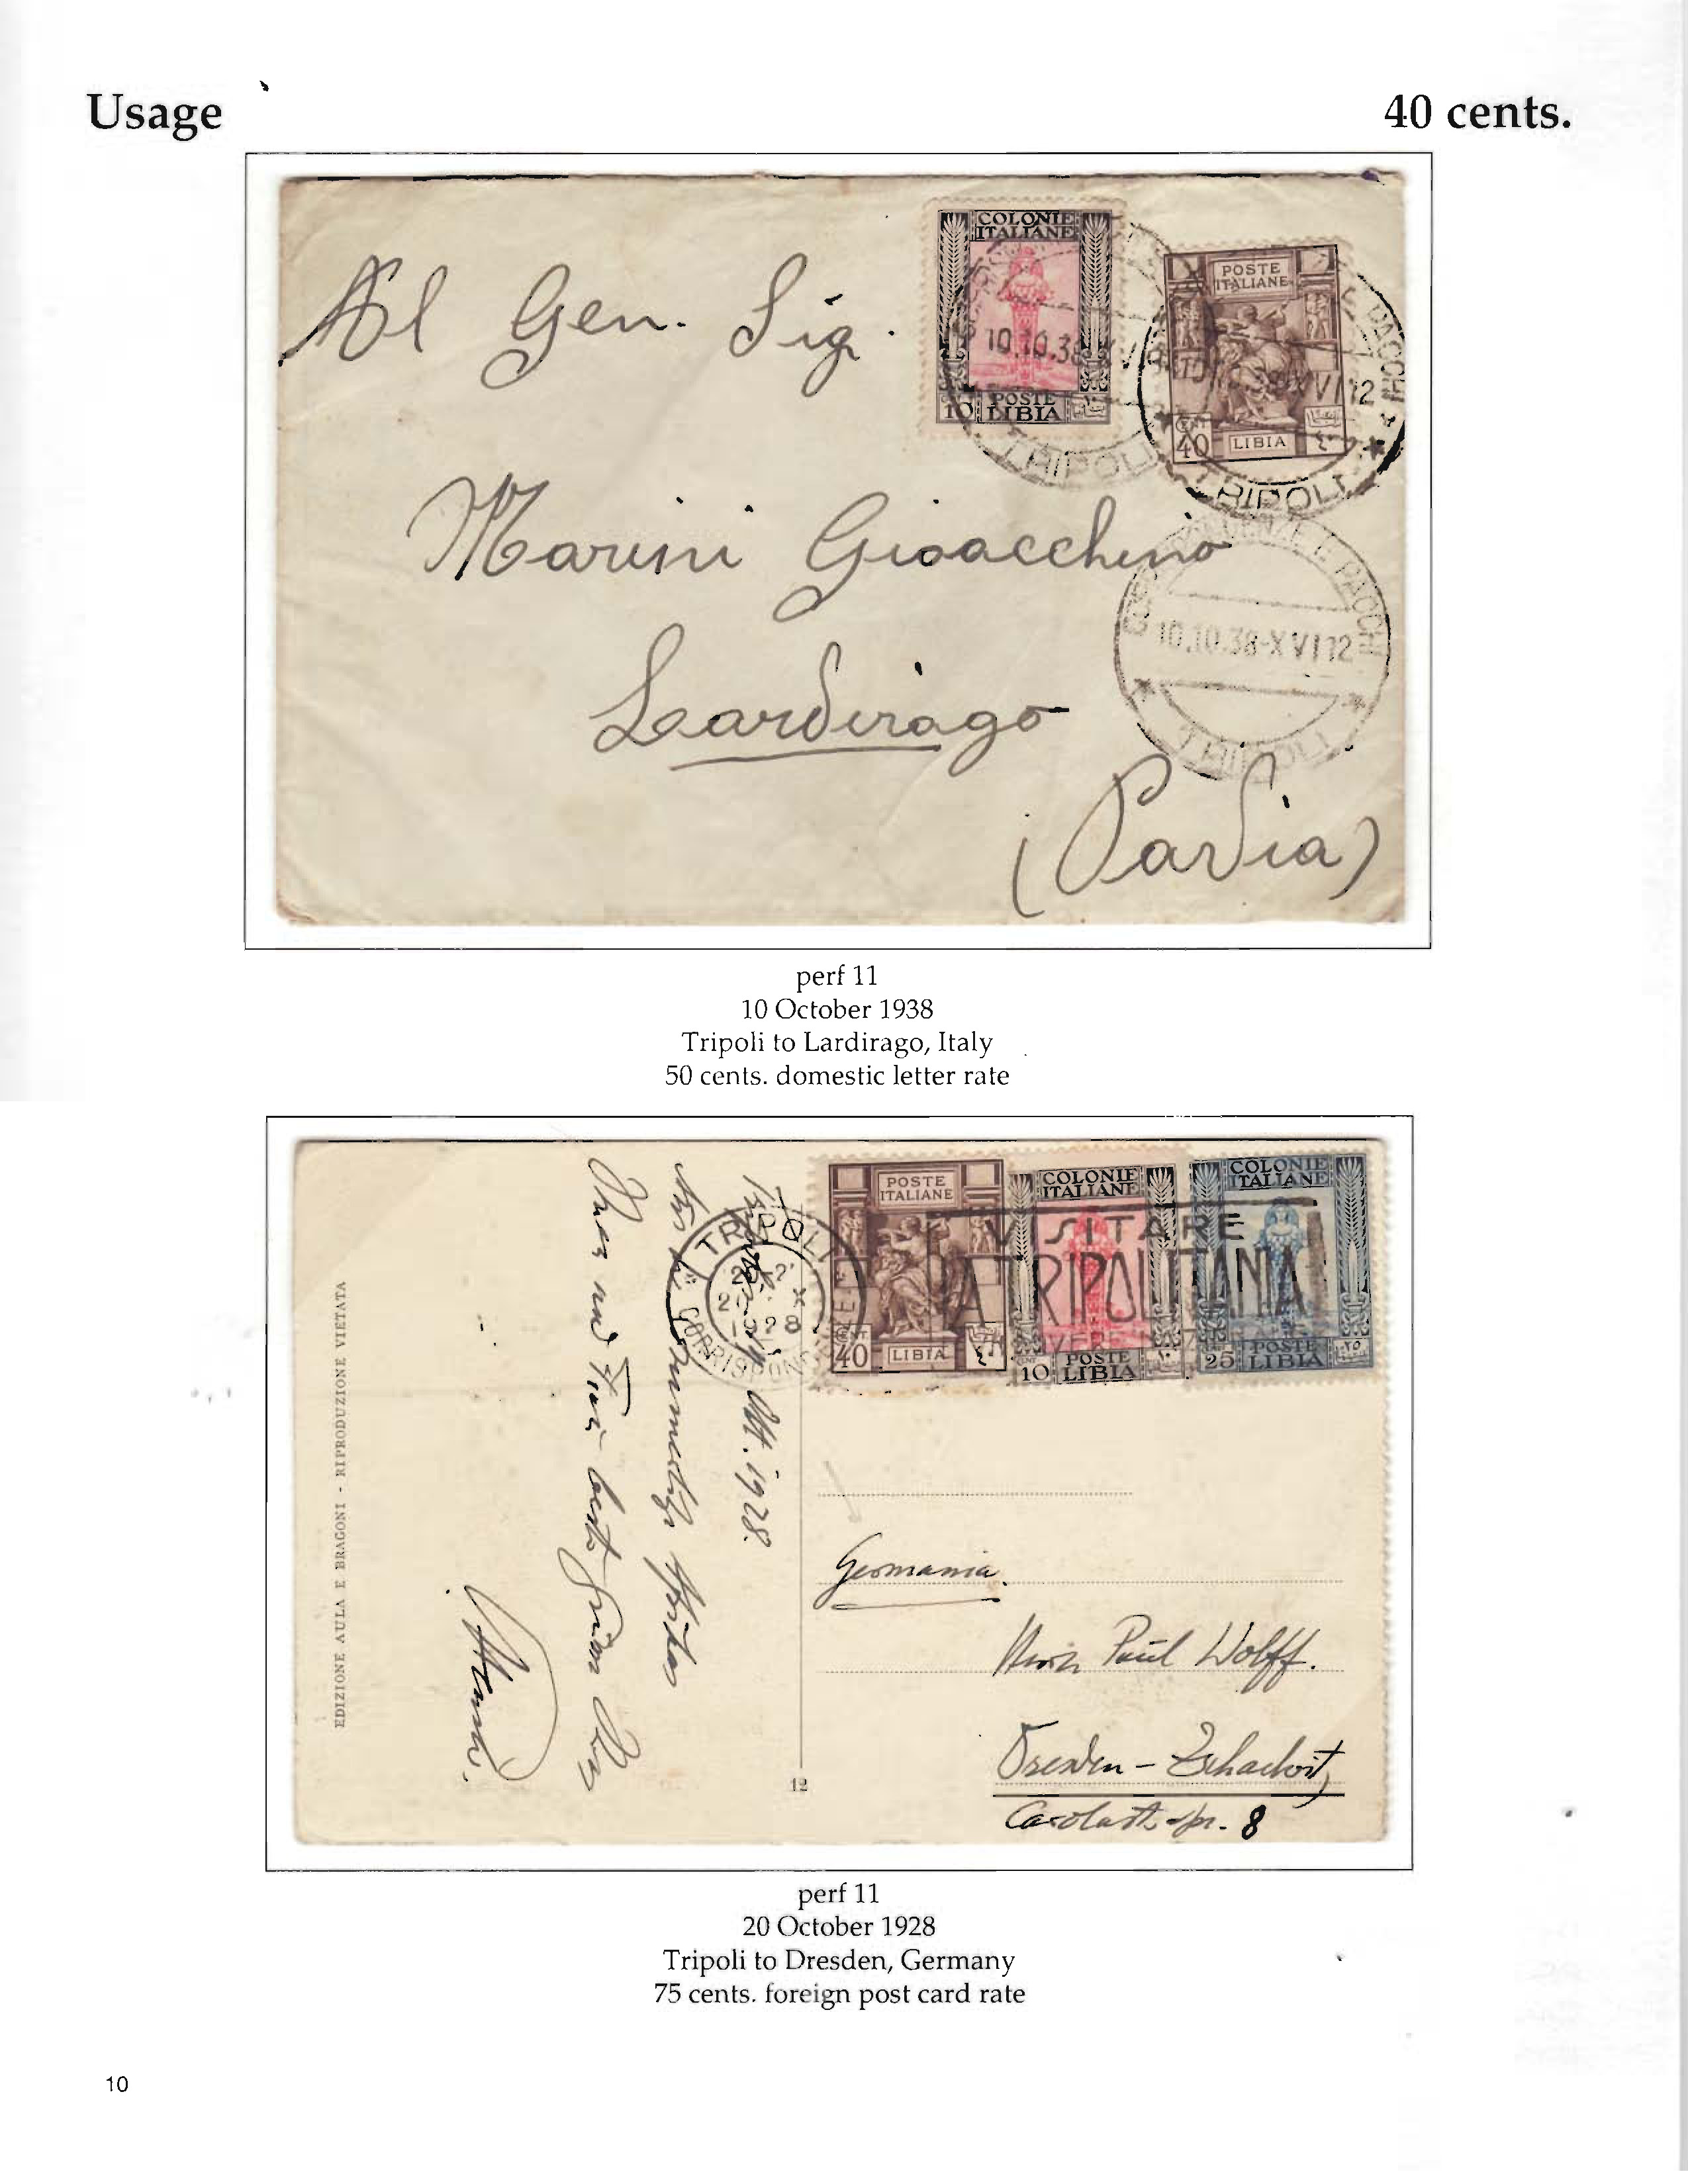 Usage
40 cents.
COLONIE
ITALIANE
10.10.38
CENT 10 POSTE
LIBIA ١٠
TRIPOLI
POSTE
ITALIANE
XVI 12
CENT
40 LIBIA ٤٠
PACCHI
TRIPOLI
Al Gen. Sig.
Marini Gioacchino
Lardirago
(Pavia)
CORRISPONDENZE E PACCHI
10.10.38-XVI 12
TRIPOLI
perf 11
10 October 1938
Tripoli to Lardirago, Italy
50 cents. domestic letter rate
EDIZIONE AULA E BRAGONI - RIPRODUZIONE VIETATA
Okt. 1928.
TRIPOLI
1928
CORRISPOND
POSTE
ITALIANE
CENT.
40 LIBIA ٤٠
COLONIE
ITALIANE
CENT 10 POSTE
LIBIA ١٠
COLONIE
ITALIANE
25 POSTE
LIBIA ٢٥
VISITARE
LA TRIPOLITANIA
Germania.
Paul Wolff.
Dresden –
8
12
perf 11
20 October 1928
Tripoli to Dresden, Germany
75 cents. foreign post card rate
10